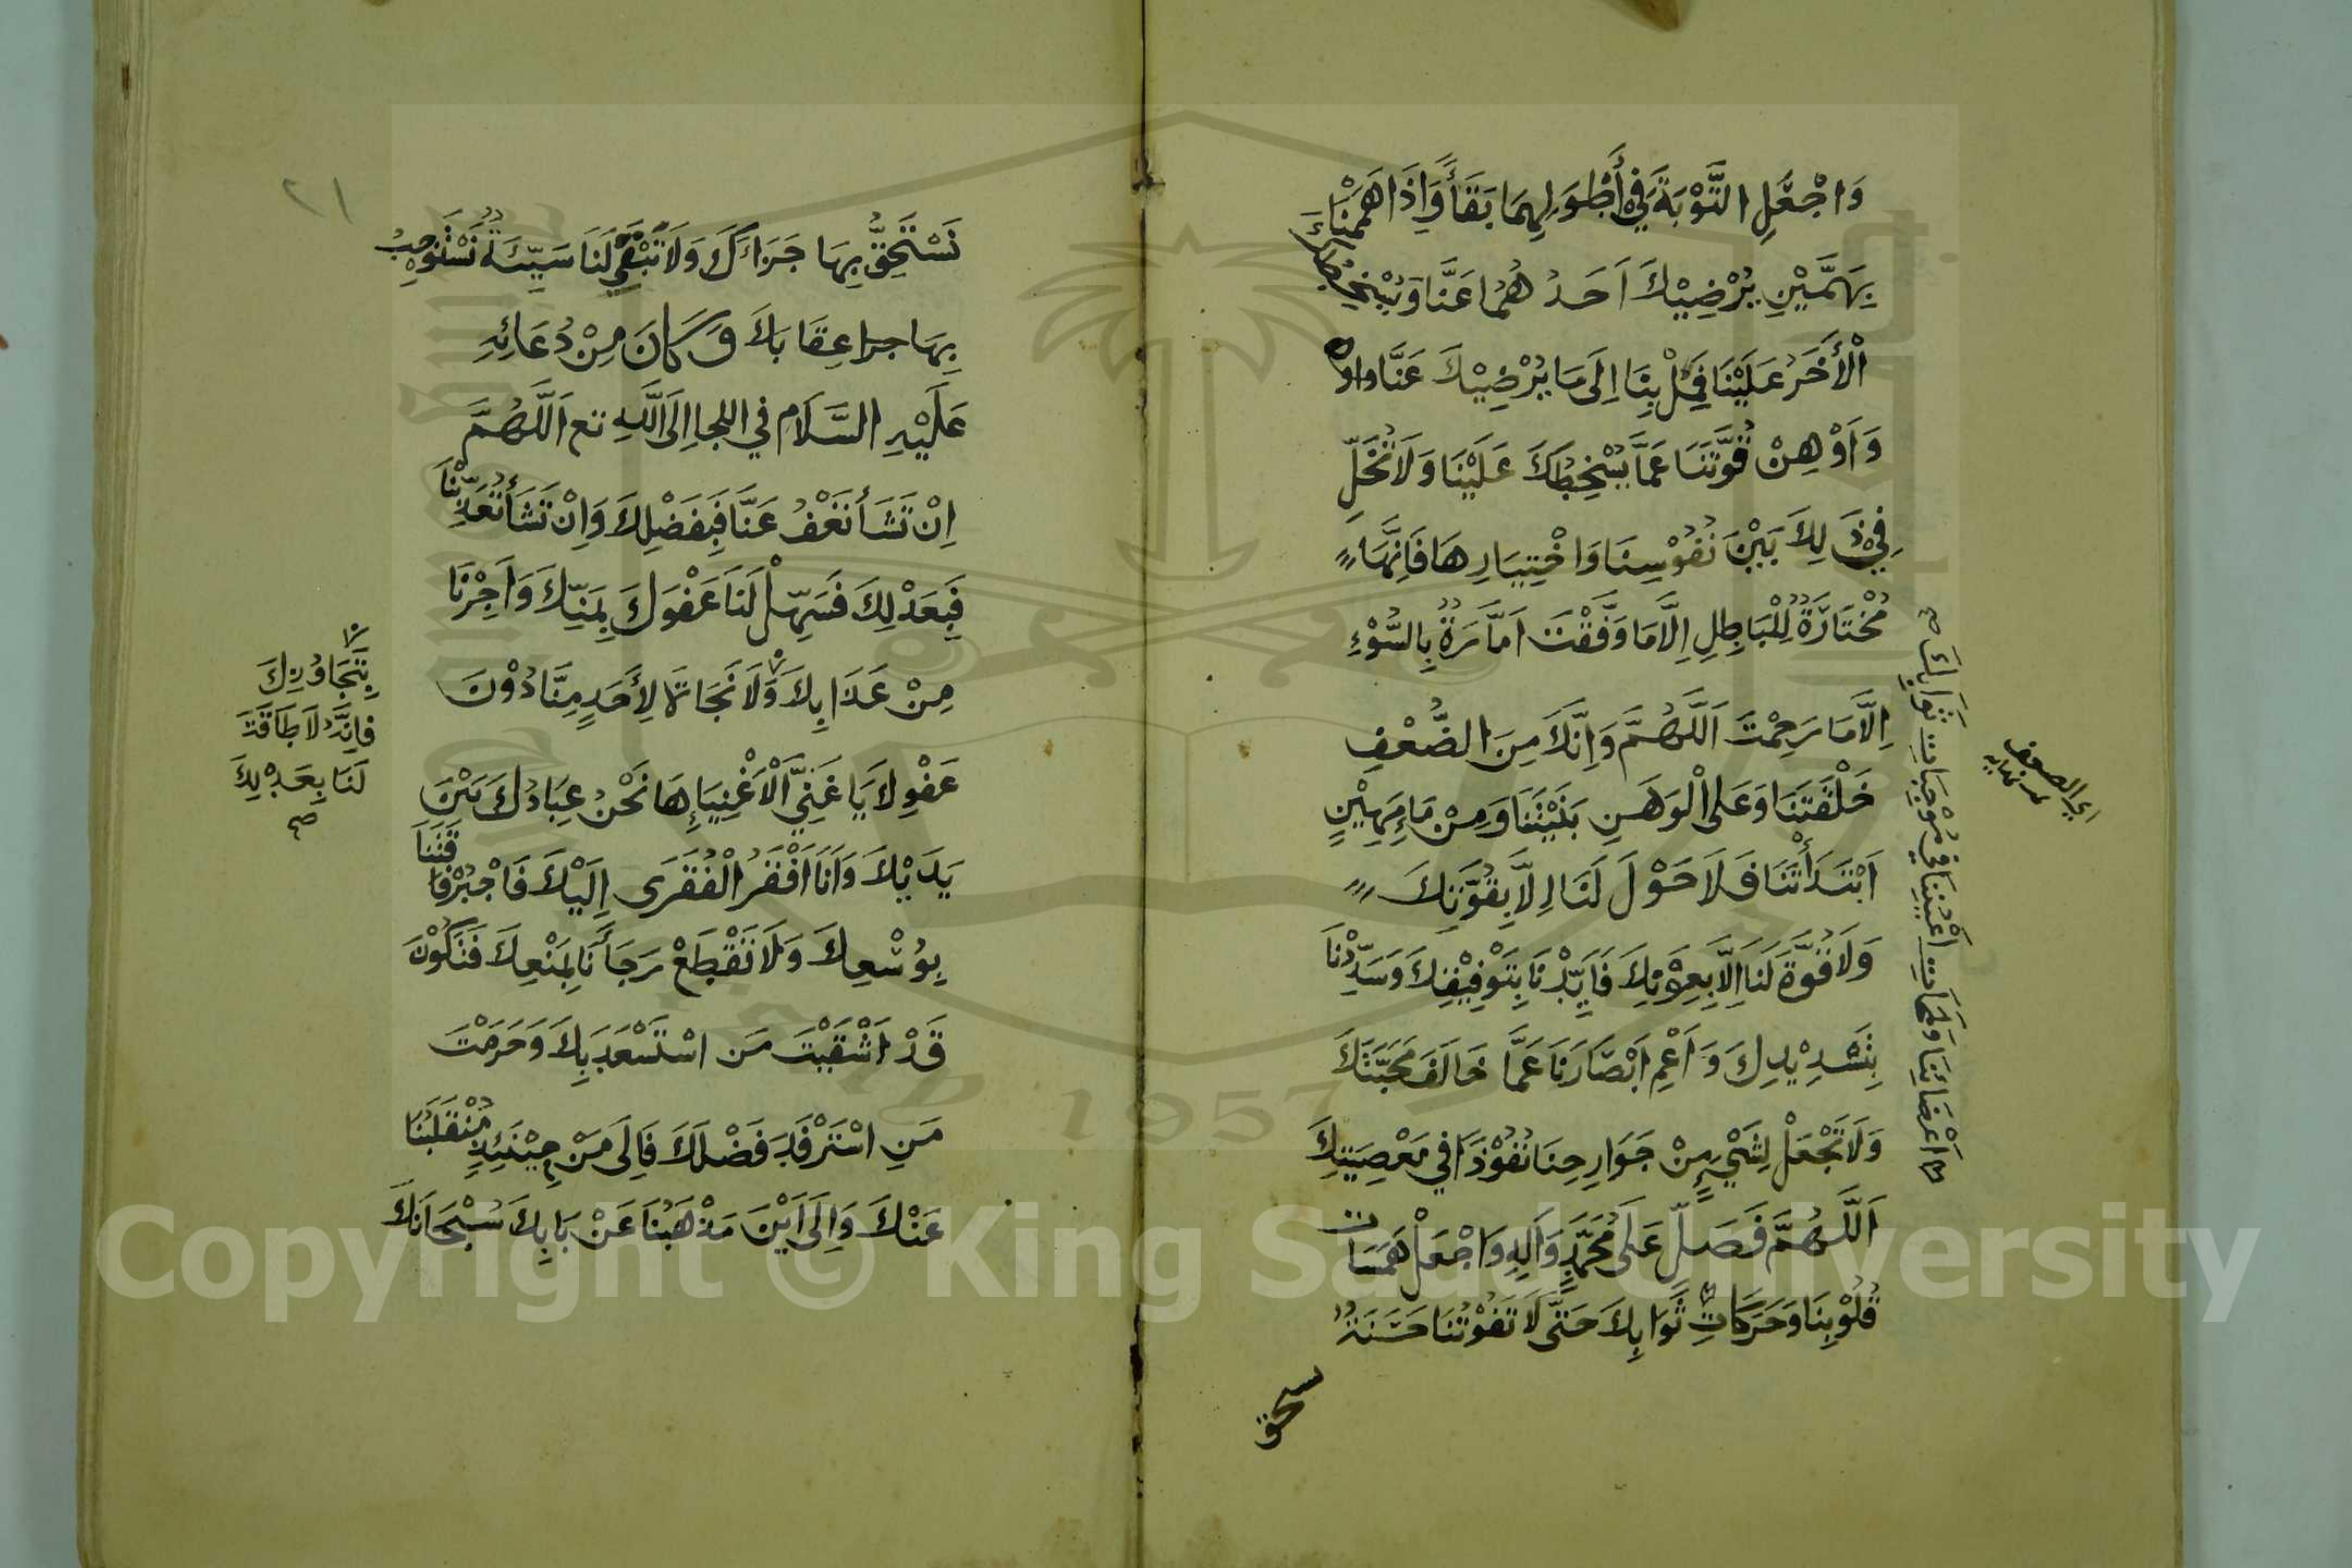 وَاجْعَلِ التَّوْبَةَ فِي أَطْوَلِهِمَا بَقَأً وَاِذَا هَمَمْنَا
بِهَمَّيْنِ يُرْضِيْكَ اَحَدُهُمَا عَنَّا وَيُسْخِطُكَ
الْأَخَرُ عَلَيْنَا فَمِلْ بِنَا اِلَى مَا يُرْضِيْكَ عَنَّا
وَاَوْهِنْ قُوَّتَنَا عَمَّا يُسْخِطُكَ عَلَيْنَا وَلَا تُخَلِّ
فِيْ ذَلِكَ بَيْنَ نُفُوْسِنَا وَاخْتِيَارِهَا فَاِنَّهَا
مُخْتَارَةٌ لِلْبَاطِلِ اِلَّا مَا وَفَّقْتَ اَمَّارَةٌ بِالسُّوْءِ
اِلَّا مَا رَحِمْتَ اَللَّهُمَّ وَاِنَّكَ مِنَ الضُّعْفِ
خَلَقْتَنَا وَعَلَى الْوَهَنِ بَنَيْتَنَا وَمِنْ مَاءٍ مَهِيْنٍ
اَبْتَدَأْتَنَا فَلَا حَوْلَ لَنَا اِلَّا بِقُوَّتِكَ
وَلَا قُوَّةَ لَنَا اِلَّا بِعَوْنِكَ فَاَيِّدْنَا بِتَوْفِيْقِكَ وَسَدِّدْنَا
بِتَسْدِيْدِكَ وَاَعْمِ اَبْصَارَنَا عَمَّا خَالَفَ مَحَبَّتَكَ
وَلَا تَجْعَلْ لِشَيْءٍ مِنْ جَوَارِحِنَا نُفُوْذًا فِي مَعْصِيَتِكَ
اَللَّهُمَّ فَصَلِّ عَلَى مُحَمَّدٍ وَآلِهِ وَاجْعَلْ هَمَسَاتِ
قُلُوْبِنَا وَحَرَكَاتِ ثَوَابِكَ حَتَّى لَا تَفُوْتَنَا حَسَنَةٌ
اَعْضَائِنَا وَلَمَحَاتِ اَعْيُنِنَا فِي مُوْجِبَاتِ ثَوَابِكَ صح
نستحق
٢١
نَسْتَحِقُّ بِهَا جَزَاءَكَ وَلَا تَبْقَى لَنَا سَيِّئَةٌ نَسْتَوْجِبُ
بِهَا عِقَابَكَ وَكَانَ مِنْ دُعَائِهِ
عَلَيْهِ السَّلَام فِي اللجا اِلَى اللَّهِ تع اَللَّهُمَّ
اِنْ تَشَأْ تَعْفُ عَنَّا فَبِفَضْلِكَ وَاِنْ تَشَأْ تُعَذِّبْنَا
فَبِعَدْلِكَ فَسَهِّلْ لَنَا عَفْوَكَ بِمَنِّكَ وَاَجِرْنَا
مِنْ عَذَابِكَ وَلَا نَجَاةَ لِأَحَدٍ مِنَّا دُوْنَ
عَفْوِكَ يَا غَنِيَّ الْاَغْنِيَاءِ هَا نَحْنُ عِبَادُكَ بَيْنَ
يَدَيْكَ وَاَنَا اَفْقَرُ الْفُقَرَى اِلَيْكَ فَاجْبُرْ فَاقَتَنَا
بِوُسْعِكَ وَلَا تَقْطَعْ رَجَأَنَا بِمَنْعِكَ فَتَكُوْنَ
قَدْ اَشْقَيْتَ مَنِ اسْتَسْعَدَ بِكَ وَحَرَمْتَ
مَنِ اسْتَرْفَدَ فَضْلَكَ فَاِلَى مَنْ حِيْنَئِذٍ مُنْقَلَبُنَا
عَنْكَ وَاِلَى اَيْنَ مَذْهَبُنَا عَنْ بَابِكَ سُبْحَانَكَ
بِتَجَاوُزِكَ
فَاِنَّهُ لَا طَاقَةَ
لَنَا بِعَدْلِكَ
صح
Copyright © King Saud University
1957